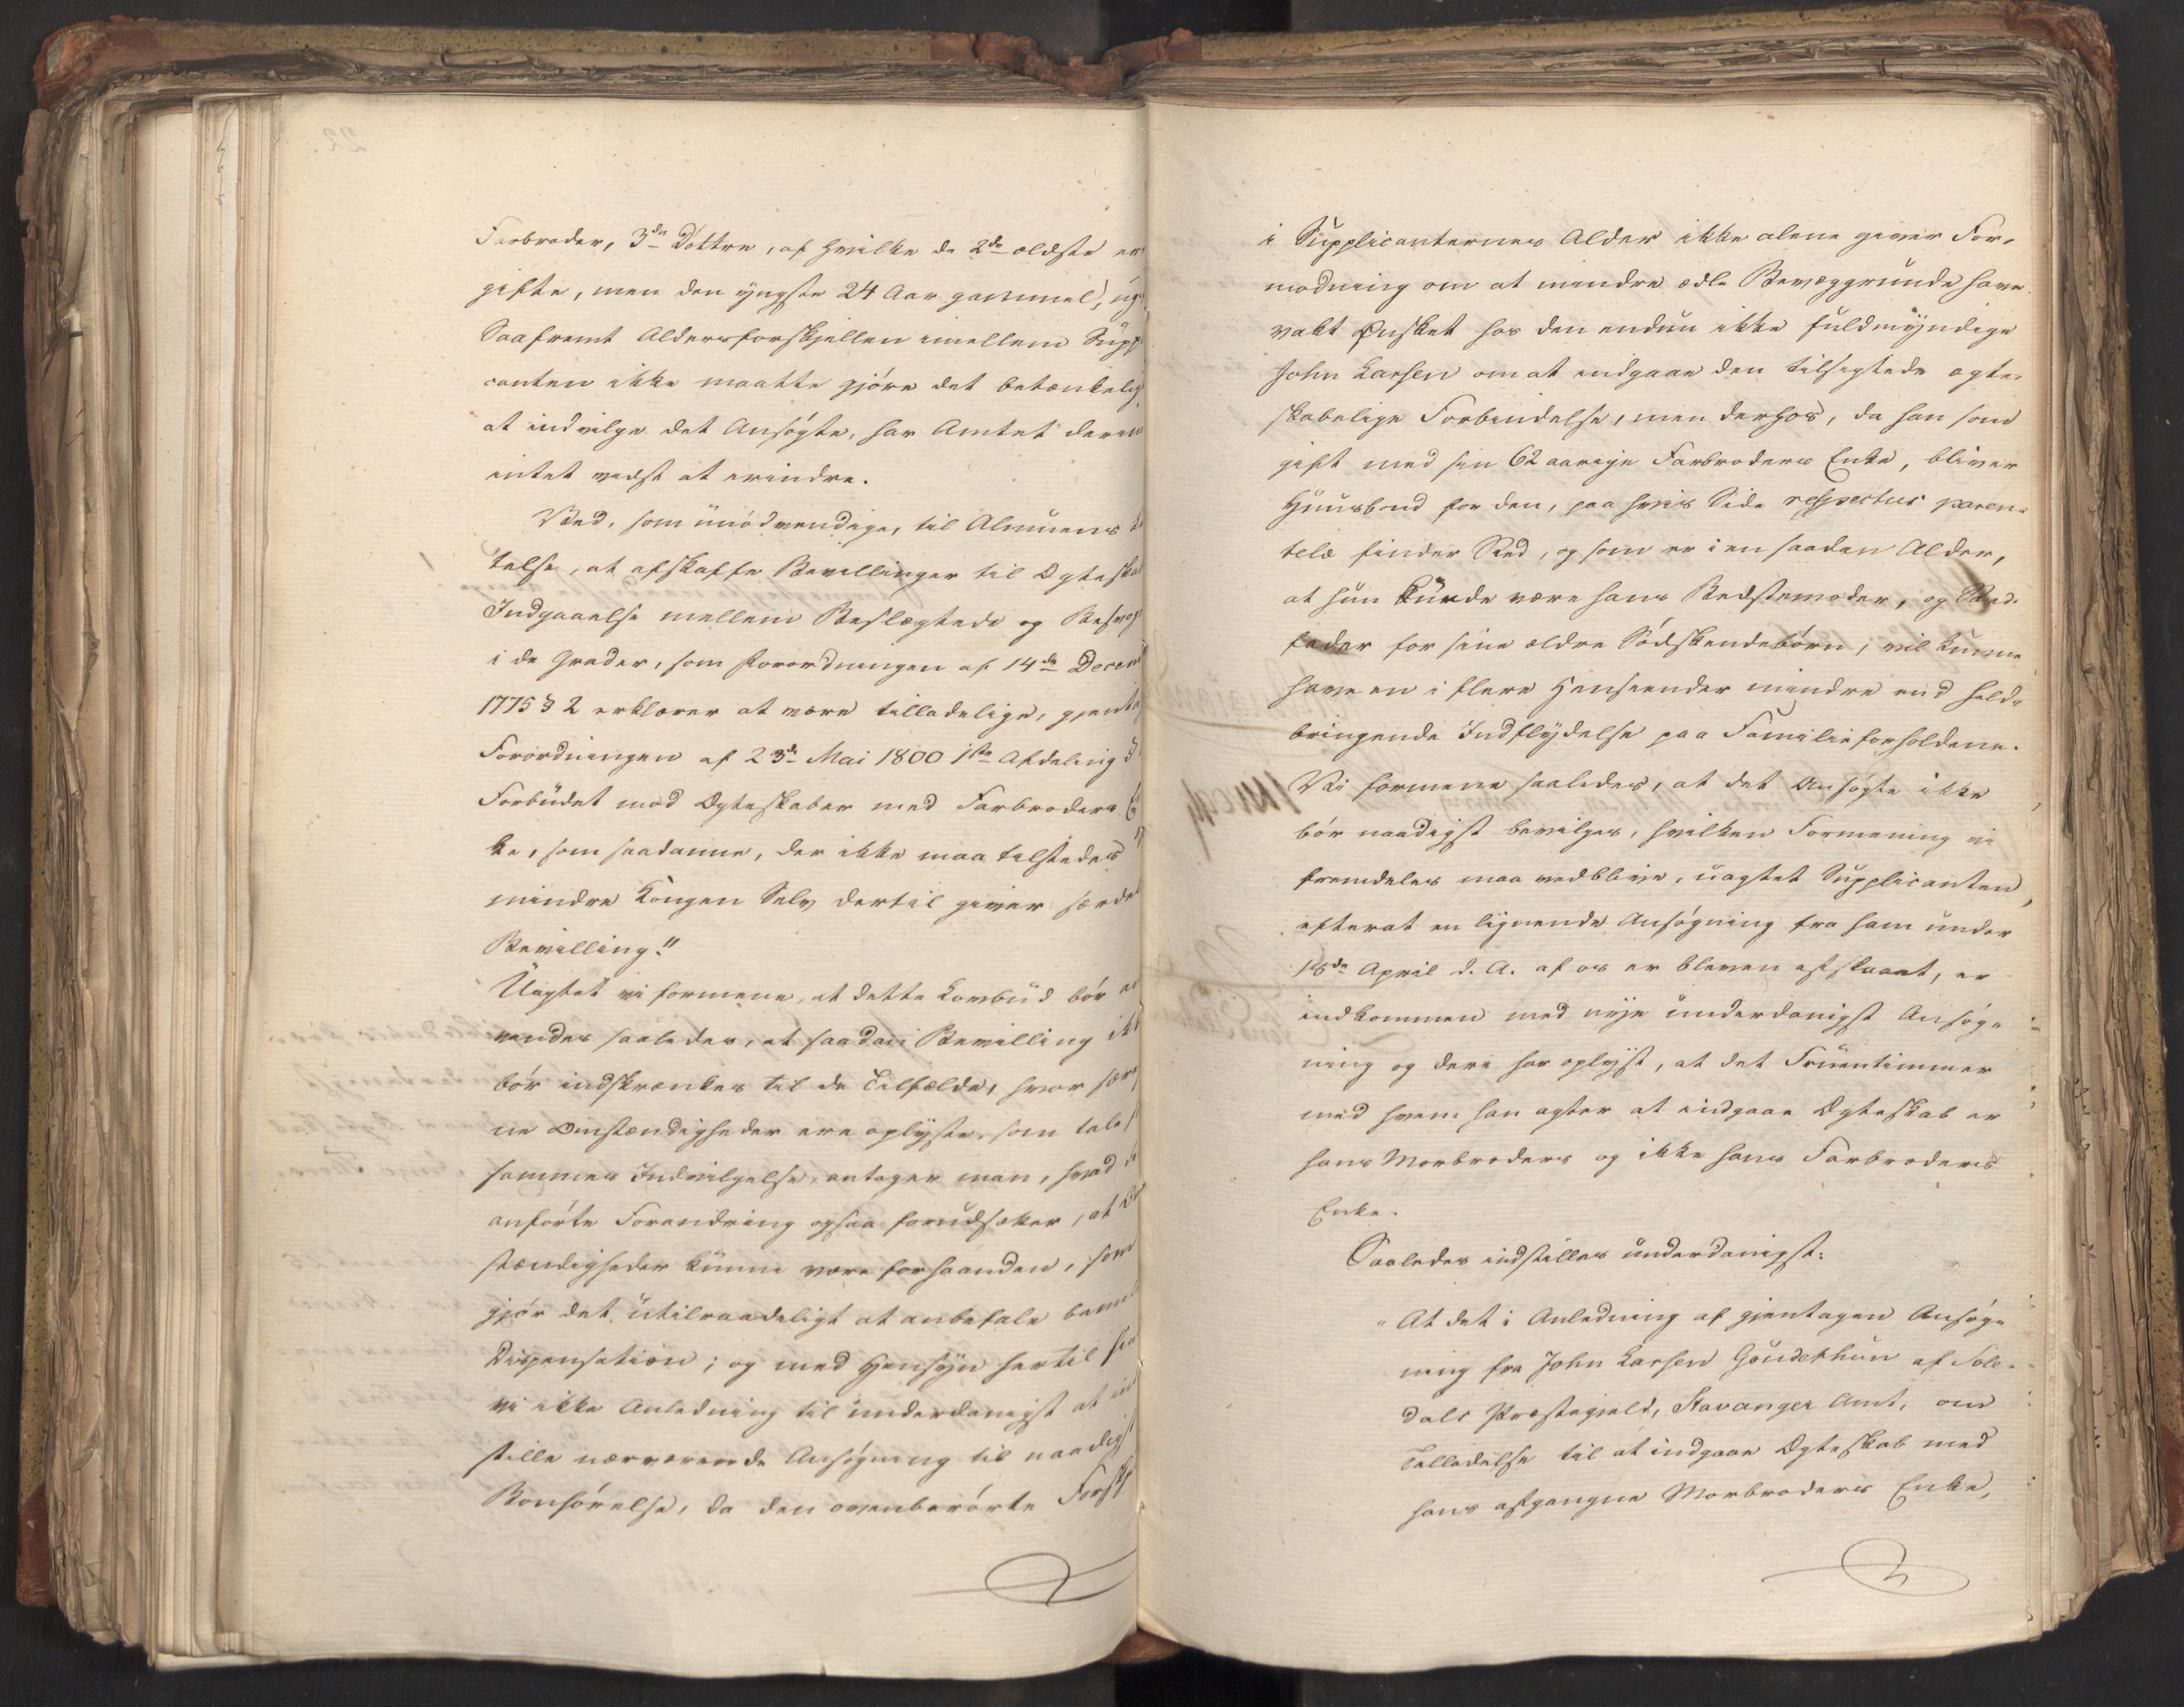 Farbroder, 3de Döttre, af hvilke de 2de ældste er
gifte, men den yngste 24 Aar gammel, og
Saafremt Aldersforskjellen imellem Supp
canten ikke maatte gjöre det betænkelig
at indvilge det Ansögte, har Amtet derimod
intet vidst at erindre.
Ved, som unödvendige, til Almuens
telse, at afskaffe Bevillinger til Ægteskabs
Indgaaelse mellem Beslægtede og Besvog
i de Grader, som Forordningen af 14de Decem
1775 § 2 erklærer at være tilladelige, gjentog
Forordningen af 23de Mai 1800 1ste Afdeling
Forbudet mod Ægteskaber med Farbroders En
ke, som saadanne, der ikke maa tilstedes
mindre Kongen Selv dertil giver særdeles
Bevilling."
Uagtet vi formene, at dette Lovbud bör an
vendes saaledes, at saadan Bevilling ikke
bör indskrænkes til de Tilfælde, hvor sær
ne Omstændigheder ere oplyste, som tale f
sammes Indvilgelse, antager man, hvad
anförte Forandring ogsaa forudsætter, at Om
stændigheder kunne være forhaanden, som
gjör det utilraadeligt at anbefale
Dispensation; og med Hensyn hertil fin
vi ikke Anledning til underdanigst at ind
stille nærværende Ansögning til naadigst
Bönhörelse, da den ovenberörte Forskj
22.
i Supplicanternes Alder ikke alene giver For-
modning om at mindre ædle Bevæggrunde have
vakt Ønsket hos den endnu ikke fuldmyndige
John Larsen om at indgaae den tilsigtede ægte-
skabelige Forbindelse, men derhos, da han som
gift med sin 62 aarige Farbroders Enke, bliver
Huusbond for den, paa hvis Side respectus paren-
telæ finder Sted, og som er i en saadan Alder,
at hun kunde være hans Bedstemoder, og Sted-
fader for sine ældre Södskendebörn, vil kunne
have en i flere Henseender mindre end held-
bringende Indflydelse paa Familieforholdene.
Vi formene saaledes, at det Ansögte ikke
bör naadigst bevilges, hvilken Formening vi
fremdeles maa vedblive, uagtet Supplicanten,
efterat en lignende Ansögning fra ham under
18de April d. A. af os er bleven afslaaet, er
indkommen med nye underdanigst Ansög-
ning og deri har oplyst, at det Fruentimmer
med hvem han agter at indgaae Ægteskab er
hans Morbroders og ikke hans Farbroders
Enke.
Saaledes indstilles underdanigst:
"At det i Anledning af gjentagen Ansög-
ning fra John Larsen Gondethun af Sole-
dals Præstegjeld, Stavanger Amt, om
Tilladelse til at indgaae Ægteskab med
hans afgangne Morbroders Enke,